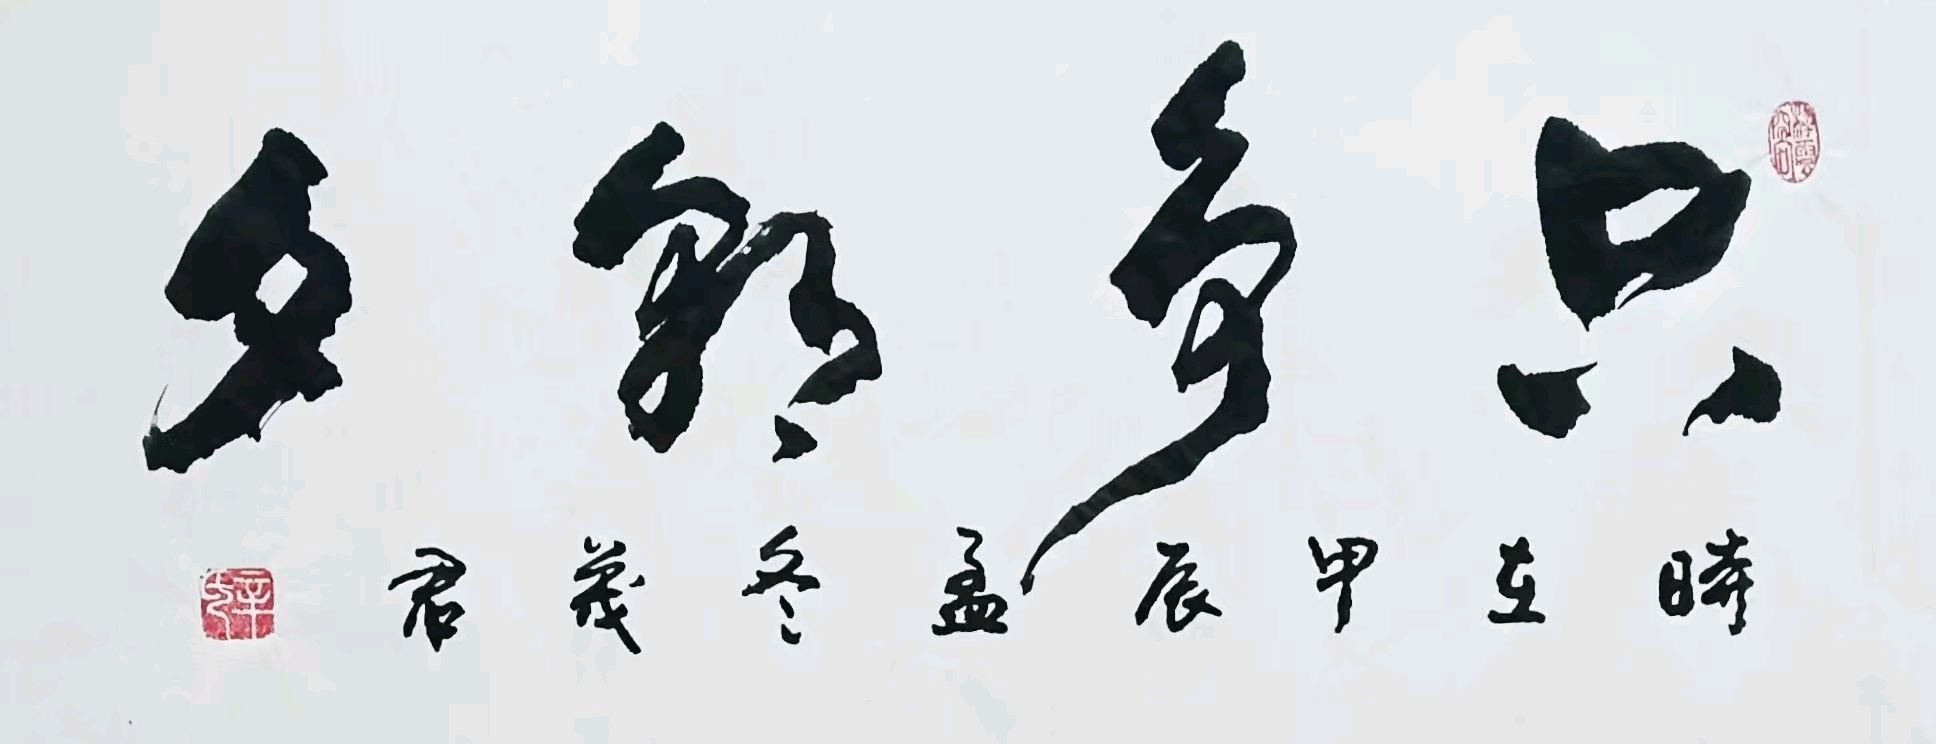 只争朝夕
時在甲辰孟冬茂君